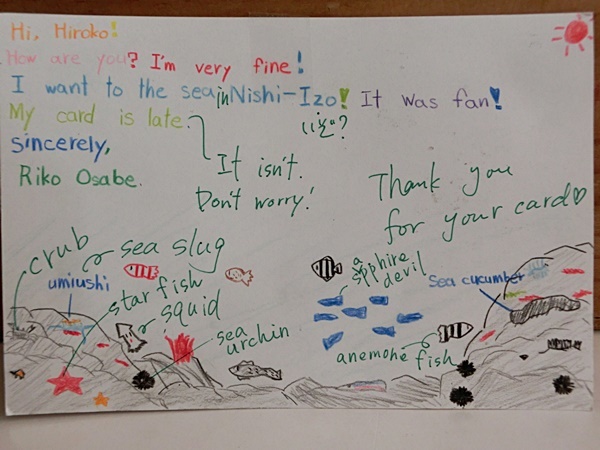 Hi, Hiroko!
How are you? I'm very fine!
I want to the sea in Nishi-Izo! It was fan!
My card is late.
Sincerely,
Riko Osabe.
It isn't.
Don't worry!
Thank you
for your card♡
crub
sea slug
umiushi
star fish
squid
sea urchin
a spphire devil
Sea cucumber
anemone fish